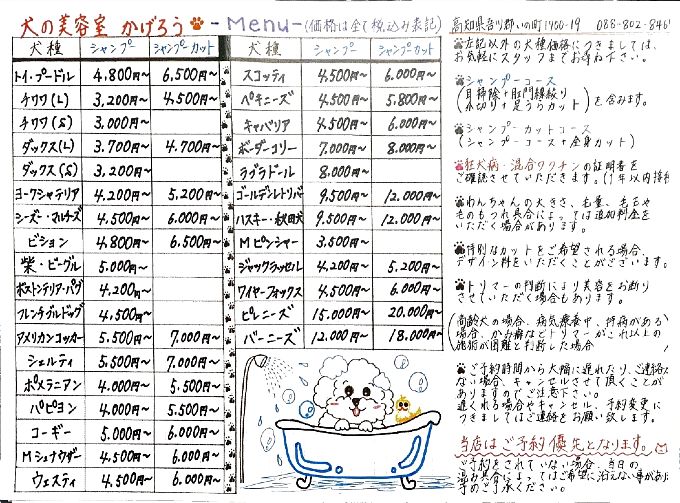 犬の美容室 かげろう - Menu - (価格は全て税込み表記)
高知県吾川郡いの町1400-19 088-802-846
犬種 シャンプー シャンプーカット
トイ・プードル 4,800円〜 6,500円〜
チワワ(L) 3,200円〜 4,500円〜
チワワ(S) 3,000円〜
ダックス(L) 3,700円〜 4,700円〜
ダックス(S) 3,200円〜
ヨークシャテリア 4,200円〜 5,200円〜
シーズー・マルチーズ 4,500円〜 6,000円〜
ビション 4,800円〜 6,500円〜
柴・ビーグル 5,000円〜
ボストンテリア・パグ 4,200〜
フレンチブルドッグ 4,500円〜
アメリカンコッカー 5,500円〜 7,000円〜
シェルティ 5,500円〜 7,000円〜
ポメラニアン 4,000円〜 5,500円〜
パピヨン 4,000円〜 5,500円〜
コーギー 5,000円〜 6,000円〜
Mシュナウザー 4,500円〜 6,000円〜
ウェスティ 4,500円〜 6,000円〜
犬種 シャンプー シャンプーカット
スコッティ 4,500円〜 6,000円〜
ペキニーズ 4,500円〜 5,800円〜
キャバリア 4,500円〜 6,000円〜
ボーダーコリー 7,000円〜 8,000円〜
ラブラドール 8,000円〜
ゴールデンレトリバー 9,500円〜 12,000円〜
ハスキー・秋田犬 9,500円〜 12,000円〜
Mピンシャー 3,500円〜
ジャックラッセル 4,200円〜 5,200円〜
ワイヤーフォックス 4,500円〜 6,000円〜
ピレニーズ 15,000円〜 20,000円〜
バーニーズ 12,000円〜 18,000円〜
左記以外の犬種価格につきましては、
お気軽にスタッフまでお尋ね下さい。
シャンプーコース
(耳掃除+肛門線絞り
爪切り+足うらカット)を含みます。
シャンプーカットコース
(シャンプーコース+全身カット)
狂犬病・混合ワクチンの証明書を
ご確認させていただきます。(1年以内接種
わんちゃんの大きさ、毛量、毛玉や
ももつれ具合によっては追加料金を
いただく場合があります。
特別なカットをご希望される場合、
デザイン料をいただくことがございます。
トリマーの判断により美容をお断り
させていただく場合もあります。
(高齢犬の場合、病気療養中、持病がある
場合、かみ癖などトリマーがこれ以上の
施術が困難と判断した場合
ご予約時間から大幅に遅れたり、ご連絡の
ない場合、キャンセルさせて頂くことが
ありますのでご注意下さい。
遅くれる場合やキャンセル、予約変更に
つきましてはご連絡をお願い致します。
当店はご予約優先となります。
ご予約をされていない場合、当日の
混み具合によってはご希望に沿えない事があり
予めご了承ください。